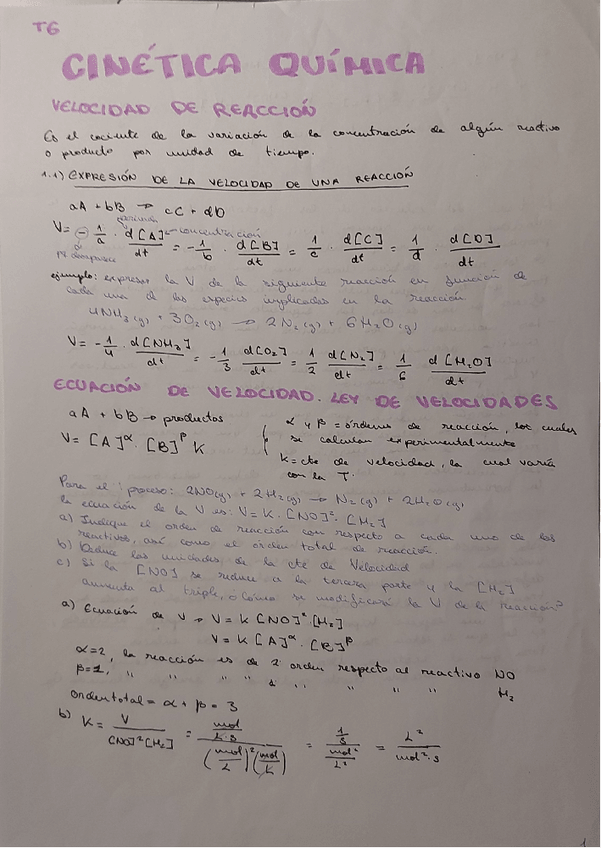 T6
CINÉTICA QUÍMICA
VELOCIDAD DE REACCIÓN
Es el cociente de la variación de la concentración de algún reactivo
o producto por unidad de tiempo.
1.1) EXPRESIÓN DE LA VELOCIDAD DE UNA REACCIÓN
aA + bB → cC + dD
V = - 1/a · d[A]/dt = - 1/b · d[B]/dt = 1/c · d[C]/dt = 1/d · d[D]/dt
concentración
ejemplo: expresar la V de la siguiente reacción en función de
cada una de las especies implicadas en la reacción
4NH3(g) + 3O2(g) → 2N2(g) + 6H2O(g)
V = - 1/4 d[NH3]/dt = - 1/3 d[O2]/dt = 1/2 d[N2]/dt = 1/6 d[H2O]/dt
ECUACIÓN DE VELOCIDAD. LEY DE VELOCIDADES
aA + bB → productos
V = [A]^α · [B]^β K
α y β = órdenes de reacción, los cuales
se calculan experimentalmente
K = cte de velocidad, la cual varía
con la T
Para el proceso: 2NO(g) + 2H2(g) → N2(g) + 2H2O(g)
la ecuación de la V es: V = K · [NO]² · [H2]
a) Indique el orden de reacción con respecto a cada uno de los
reactivos, así como el orden total de reacción.
b) Deduce las unidades de la cte de Velocidad
c) Si la [NO] se reduce a la tercera parte y la [H2]
aumenta al triple, ¿Cómo se modificará la V de la reacción?
a) Ecuación de V → V = K [NO]² · [H2]
V = K · [A]^α · [B]^β
α=2, la reacción es de 2 orden respecto al reactivo NO
β=1, " " " 1 " " " H2
Orden total = α + β = 3
b) K = V/[NO]²[H2] = (mol/L·s)/((mol/L)²(mol/L)) = (1/s)/(mol²/L²) = L²/mol²·s
1